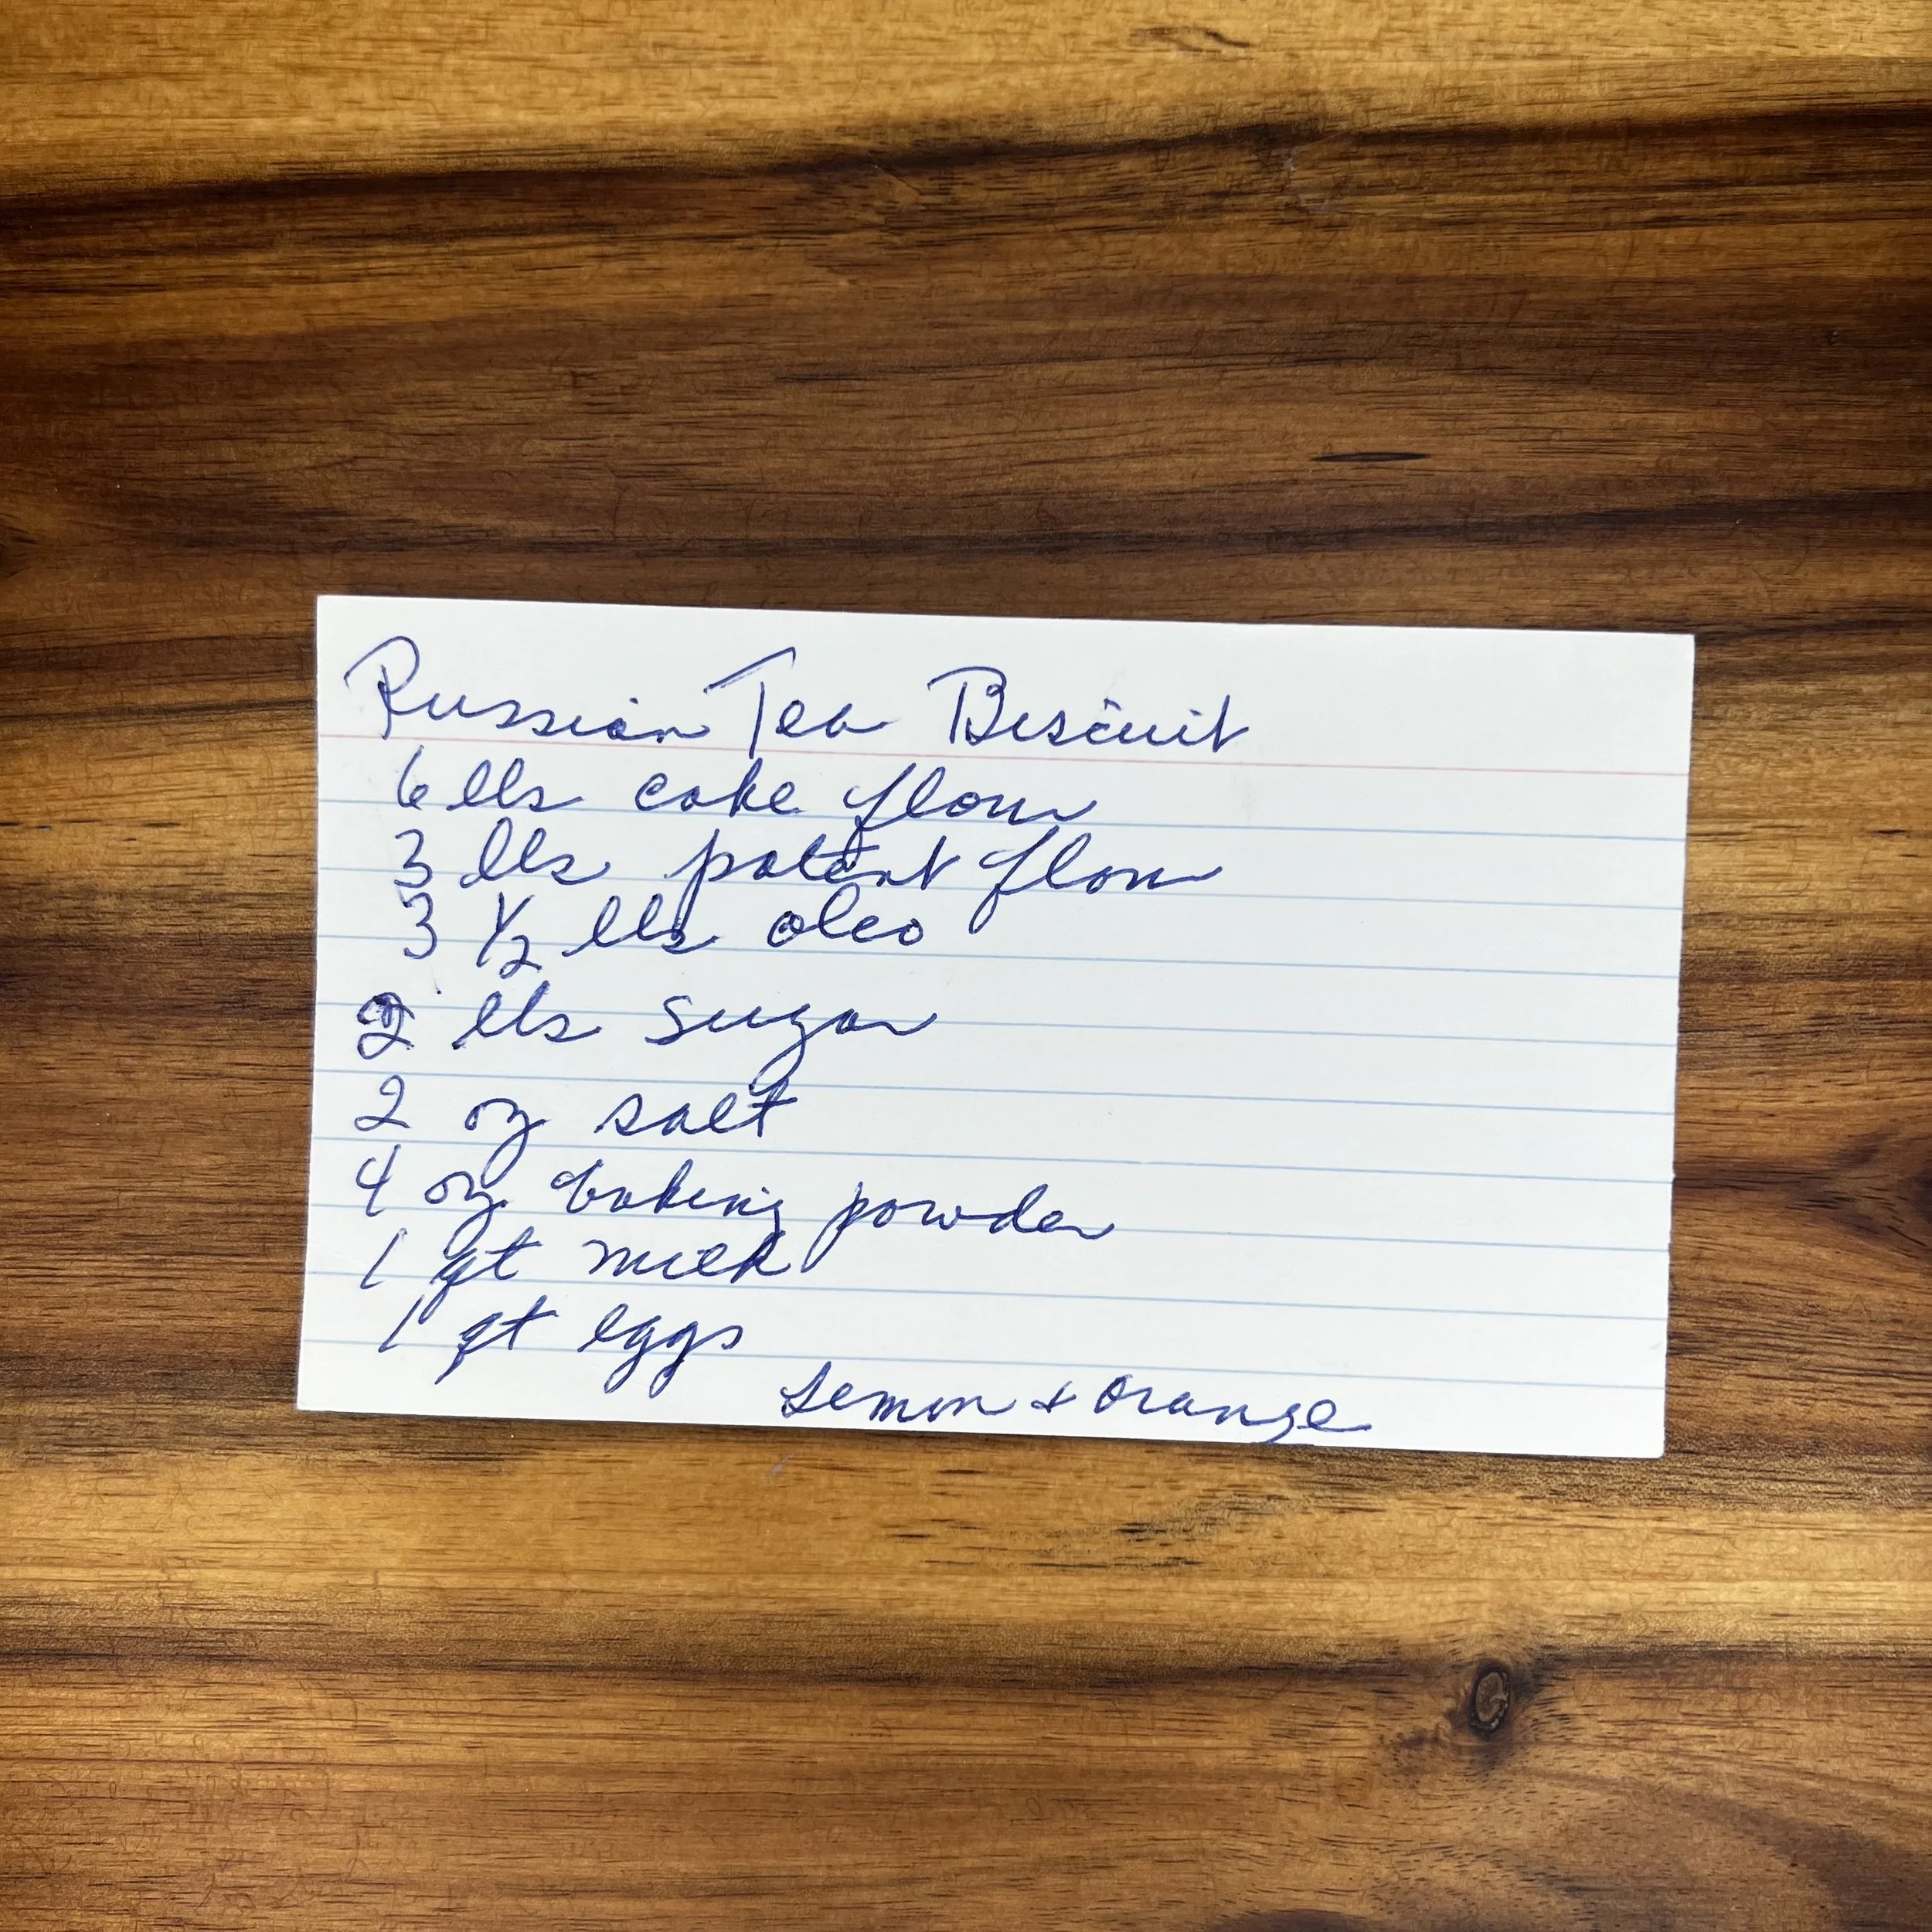 Russian Tea Biscuit
6 lbs cake flour
3 lbs patent flour
3 1/2 lbs oleo
2 lbs sugar
2 oz salt
4 oz baking powder
1 qt milk
1 qt eggs
Lemon & Orange